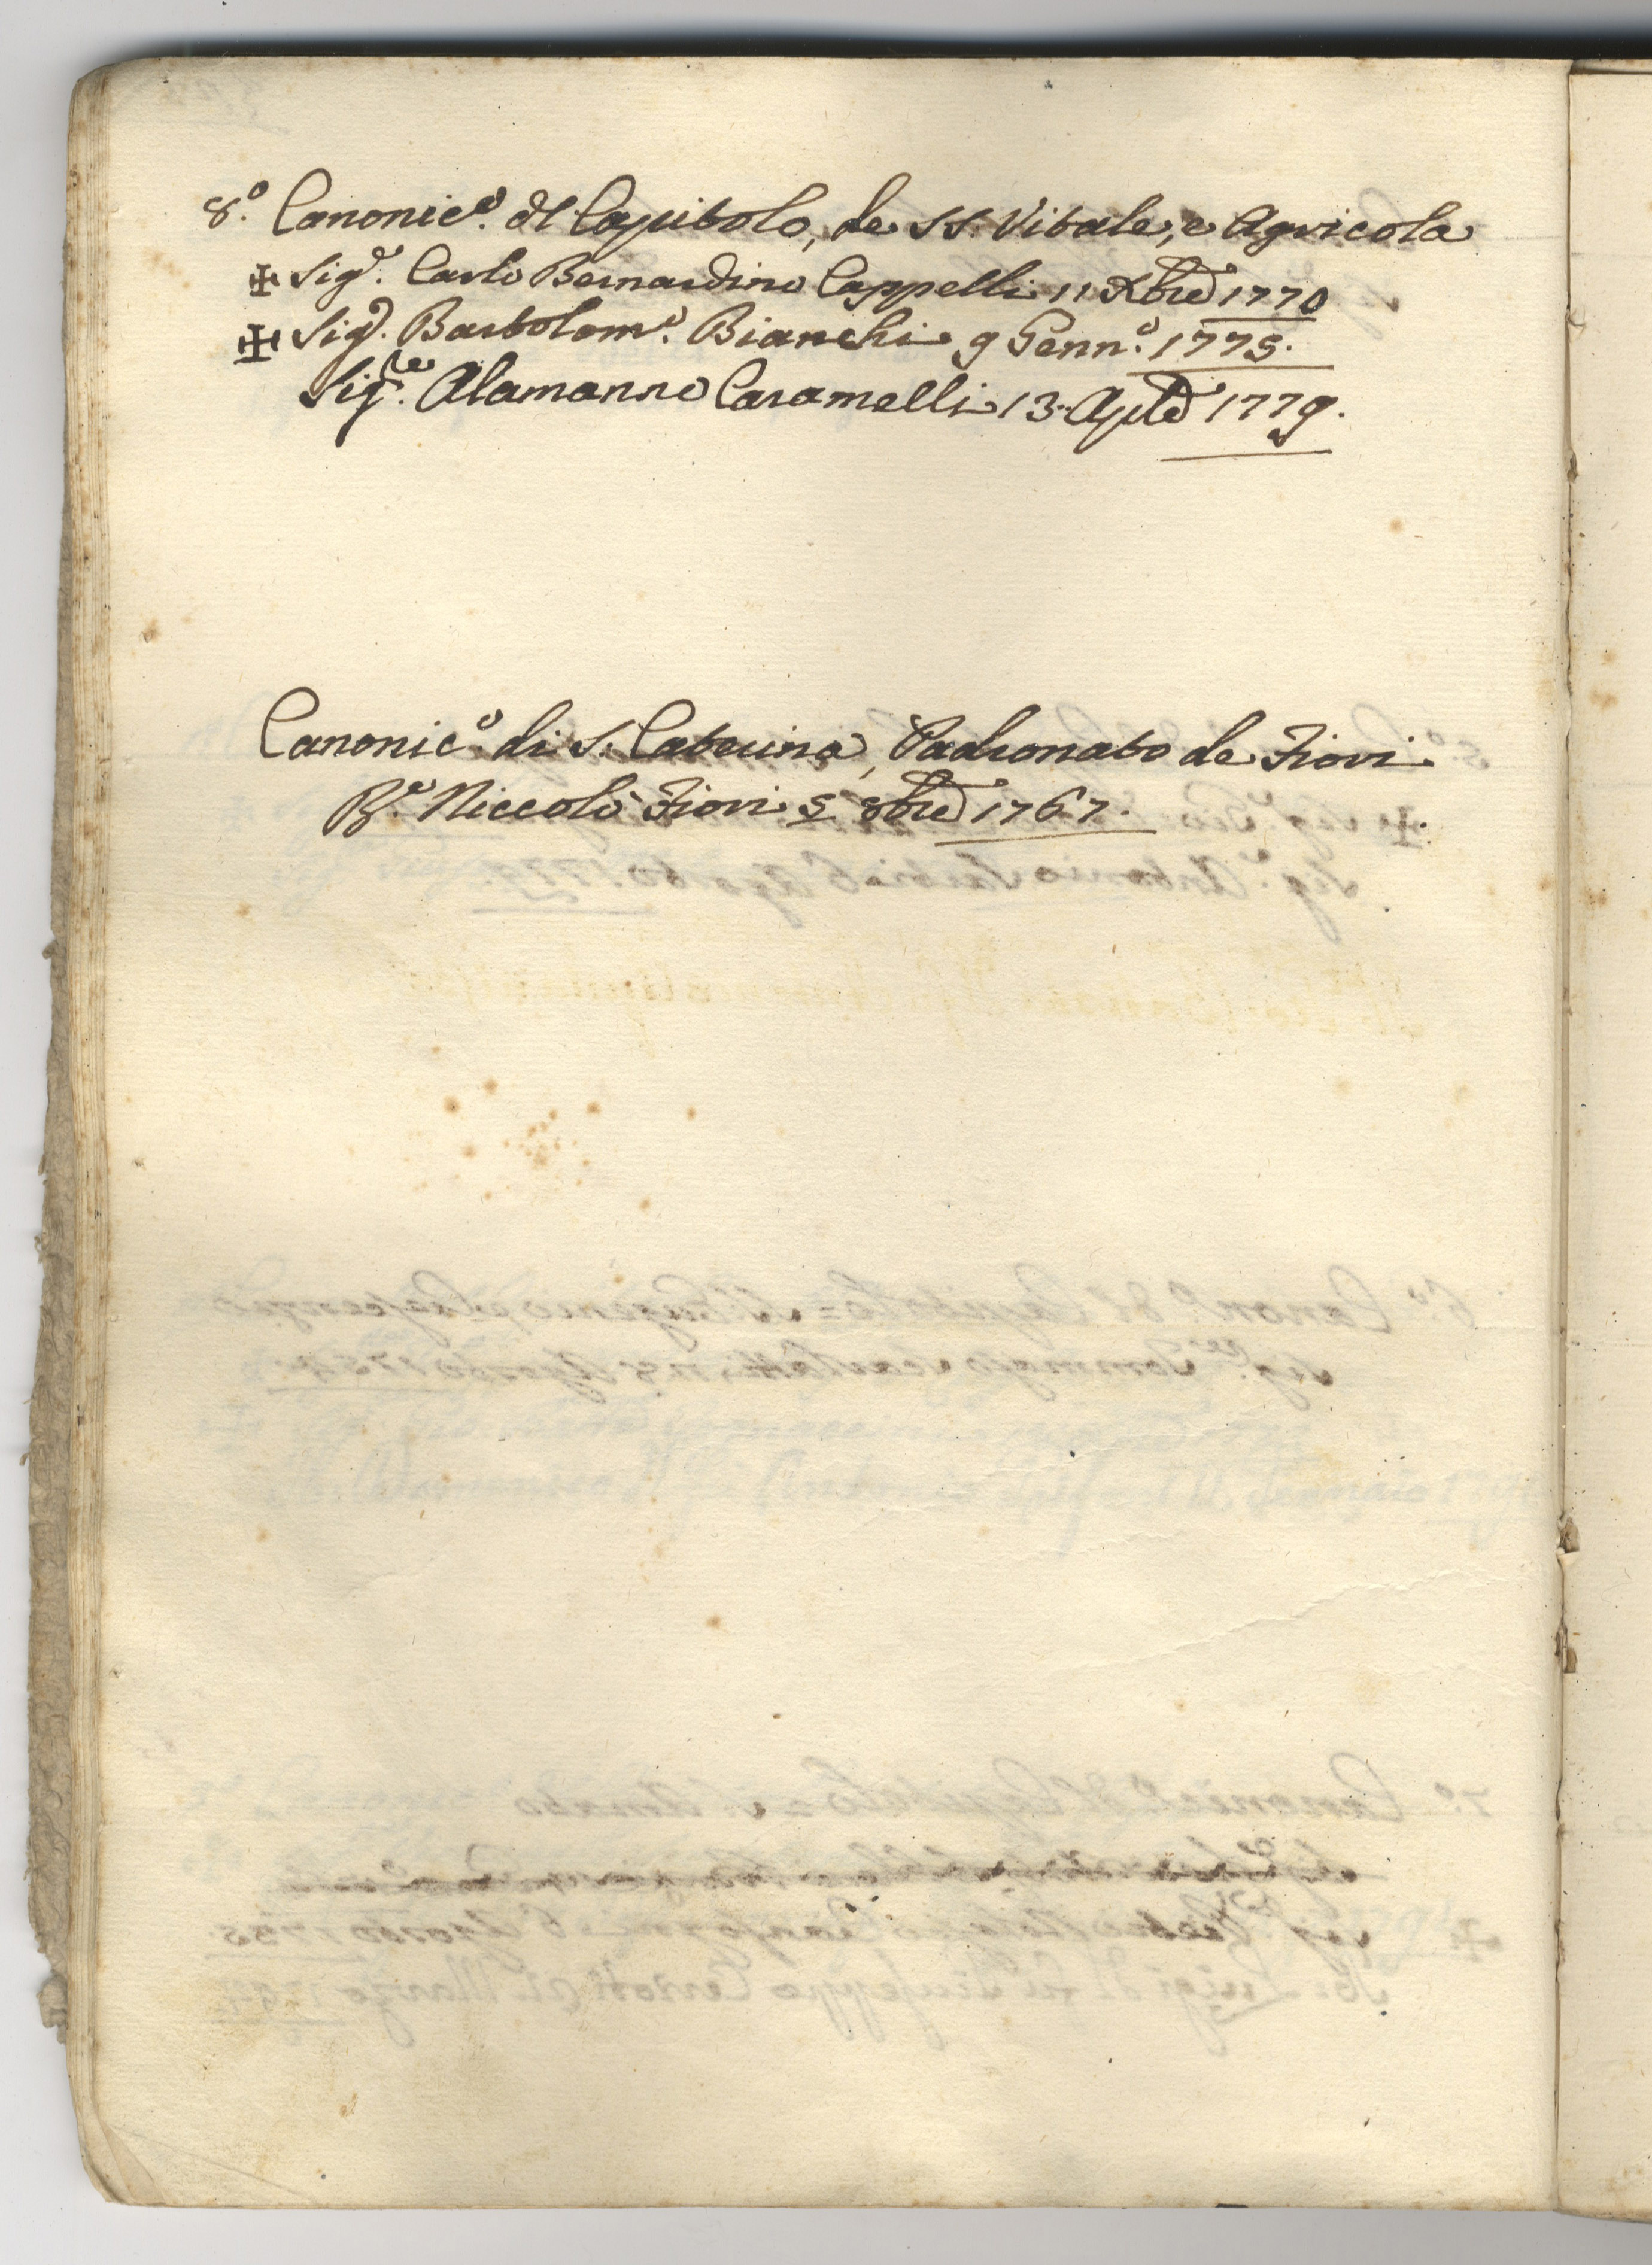 8.º Canonic.º dl Capitolo, de SS. Vitale, e Agricola
✠ Sig.e Carlo Bernardino Cappelli 11 Xbre 1770
✠ Sig.e Bartolom.o Bianchi 9 Genn.o 1775.
Sig.re Alamanno Caramelli 13. Aple 1779.
Canonic.o di S. Caterina, Padronato de Fiovi
Niccolò Fiovi 5 8bre 1767.